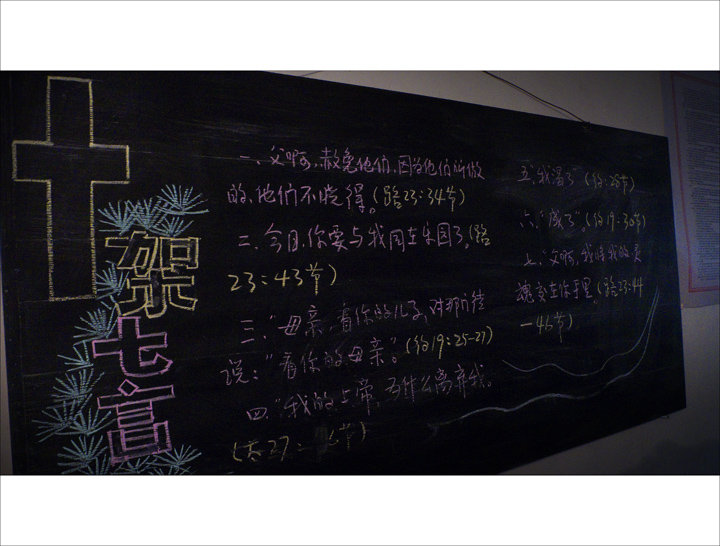 架
七言
一、父啊,赦免他们,因为他们所做
的,他们不晓得。(路23:34节)
二、今日,你要与我同在乐园了。(路
23:43节)
三、"母亲,看你的儿子,对那门徒
说:"看你的母亲"。(约19:25-27)
四、"我的上帝,为什么离弃我。
(太27:
五、"我渴了"(约:28节)
六、"成了"。(约19:30节)
七、"父啊,我将我的灵
魂交在你手里"(路23:44
-46节)